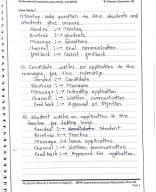 1) Teacher asks question to the students and students
give answer.
Sender → Teacher
Receiver → students
Message → Questions
Channel → Oral communication.
feed back → Correct feedback
2) Candidate writes an application to the
manager for the internship
Sender → Candidate
Receiver → Manager
Message → Internship application
Channel → Written communication.
feed back → Approval or Rejection
3) Student writes an application to the
teacher for taking leave.
Sender → Student
Receiver → Teacher
Message → leave application.
Channel → Written communication.
feed back → Approval application.